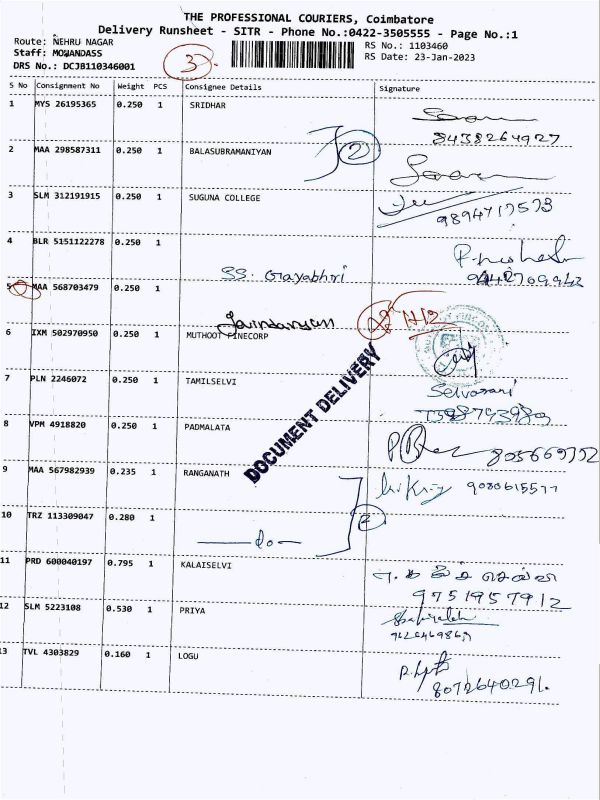 THE PROFESSIONAL COURIERS, Coimbatore
Delivery Runsheet - SITR - Phone No.:0422-3505555 - Page No.:1
Route: NEHRU NAGAR
Staff: MOHANDASS
DRS No.: DCJB110346001
3
RS No.: 1103460
RS Date: 23-Jan-2023
S No Consignment No Weight PCS Consignee Details Signature
1 MYS 26195365 0.250 1 SRIDHAR
8438264927
2 MAA 298587311 0.250 1 BALASUBRAMANIYAN 2
3 SLM 312191915 0.250 1 SUGUNA COLLEGE
9894717573
4 BLR 5151122278 0.250 1
SS. Gayabhri
5 MAA 568703479 0.250 1
6 IXM 502970950 0.250 1 MUTHOOT FINECORP
7 PLN 2246072 0.250 1 TAMILSELVI
Selvarani
DOCUMENT DELIVERY
8 VPM 4918820 0.250 1 PADMALATA
9 MAA 567982939 0.235 1 RANGANATH
9080615577
10 TRZ 113309047 0.280 1
do 2
11 PRD 600040197 0.795 1 KALAISELVI
9751957912
12 SLM 5223108 0.530 1 PRIYA
13 TVL 4303829 0.160 1 LOGU
8072640291.